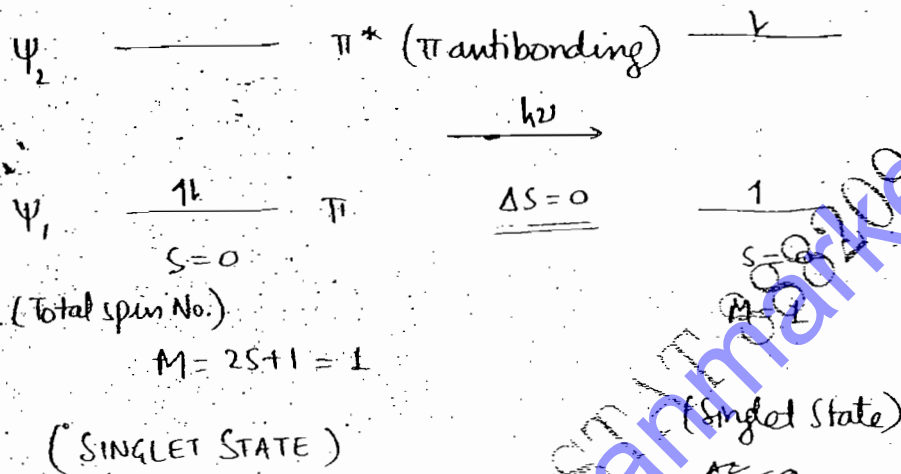 Ψ₂ π* (π antibonding) ⇂
hν
Ψ₁ ↿⇂ π ΔS = 0 ↿
S = 0 S = 0
(Total spin No.) M = 1
M = 2S+1 = 1
(Singlet State)
(SINGLET STATE)